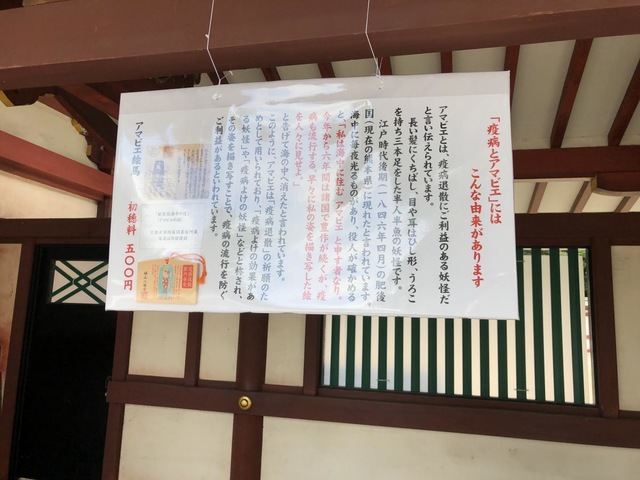 「疫病とアマビエ」には
こんな由来があります
アマビエとは、疫病退散にご利益のある妖怪だ
と言い伝えられています。
長い髪にくちばし、目や耳はひし形、うろこ
を持ち三本足をした半人半魚の妖怪です。
江戸時代後期(一八四六年四月)の肥後
国(現在の熊本県)に現れたと言われています。
海中に毎夜光るものがあり、役人が確かめる
と「私は海中に住む アマビエ と申す者なり。
今年から六年間は諸国で豊作が続くが、疫
病も流行する。早々に私の姿を描き写した絵
を人々に見せよ。」
と告げて海の中へ消えたと言われています。
このように、アマビエは、「疫病退散」の祈願のた
めとして用いられており、「疫病よけの効果があ
る妖怪」や、「疫病よけの妖怪」などと称され、
その姿を描き写すことで、疫病の流行を防ぐ
ご利益があるといわれています。
アマビエ絵馬
初穂料 五〇〇円